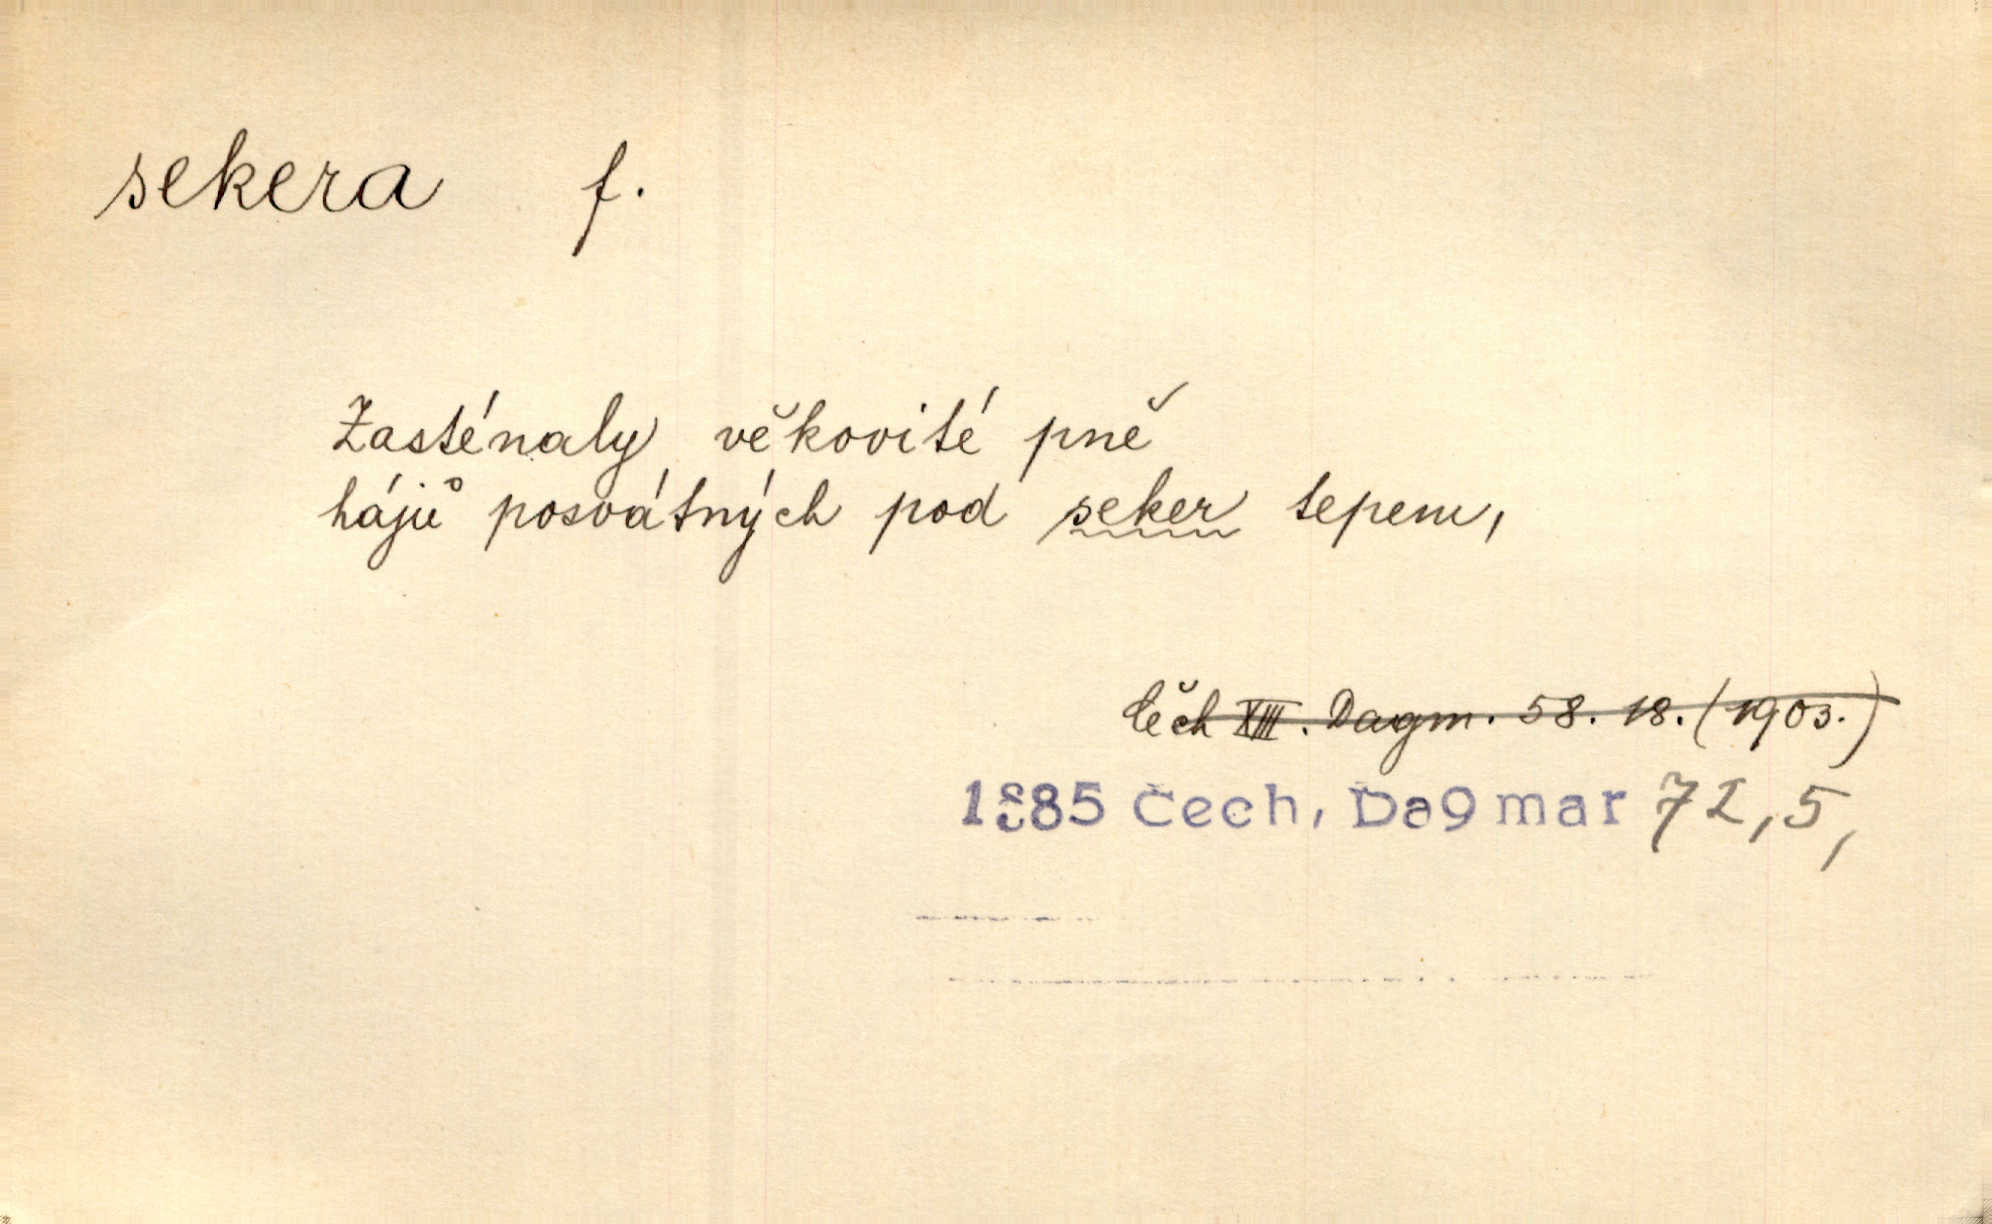 sekera f.
Zasténaly věkovité pně
hájů posvátných pod seker tepem,
Čech XIII. Dagm. 58. 18. (1903.)
1885 Čech, Dagmar 72,5,